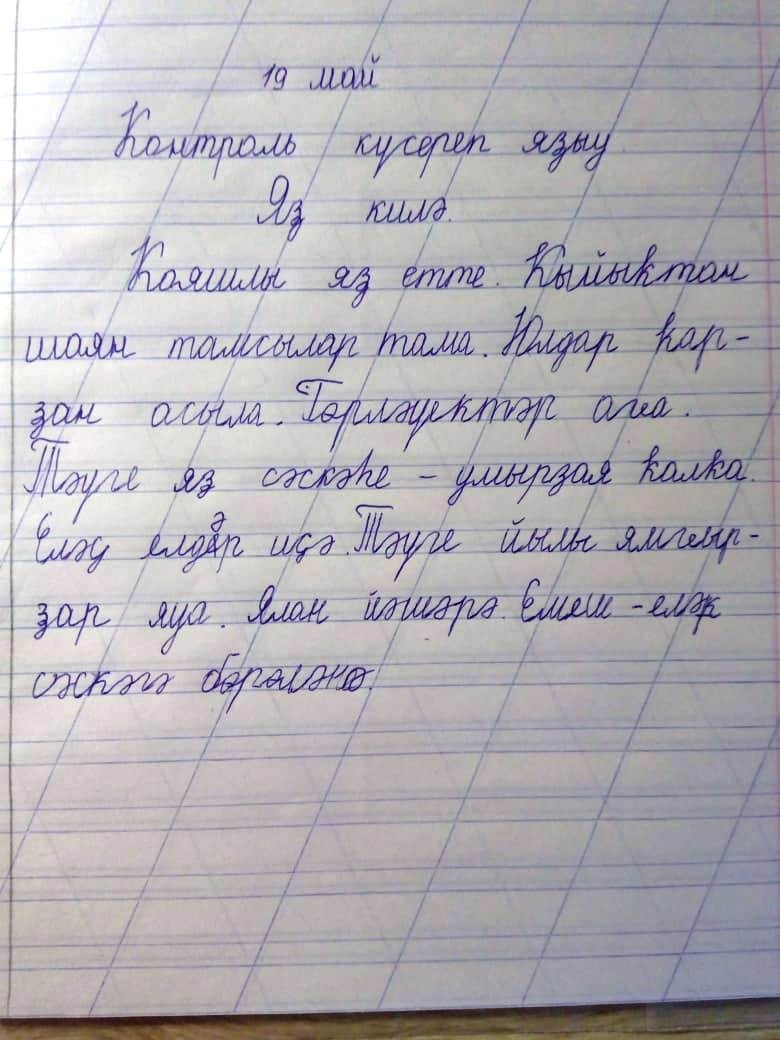 19 май
Контроль күсереп языу
Яҙ килә.
Ҡояшлы яҙ етте. Ҡыйыҡтан
шаян тамсылар тама. Юлдар ҡар-
ҙан асыла. Гөрләүектәр аға.
Тәүге яҙ сәскәһе - умырзая ҡалҡа.
Еләҫ елдәр иҫә. Тәүге йылы ямғыр-
ҙар яуа. Ялан йәшәрә. Емеш-еләк
сәскәгә бөрөләнә.